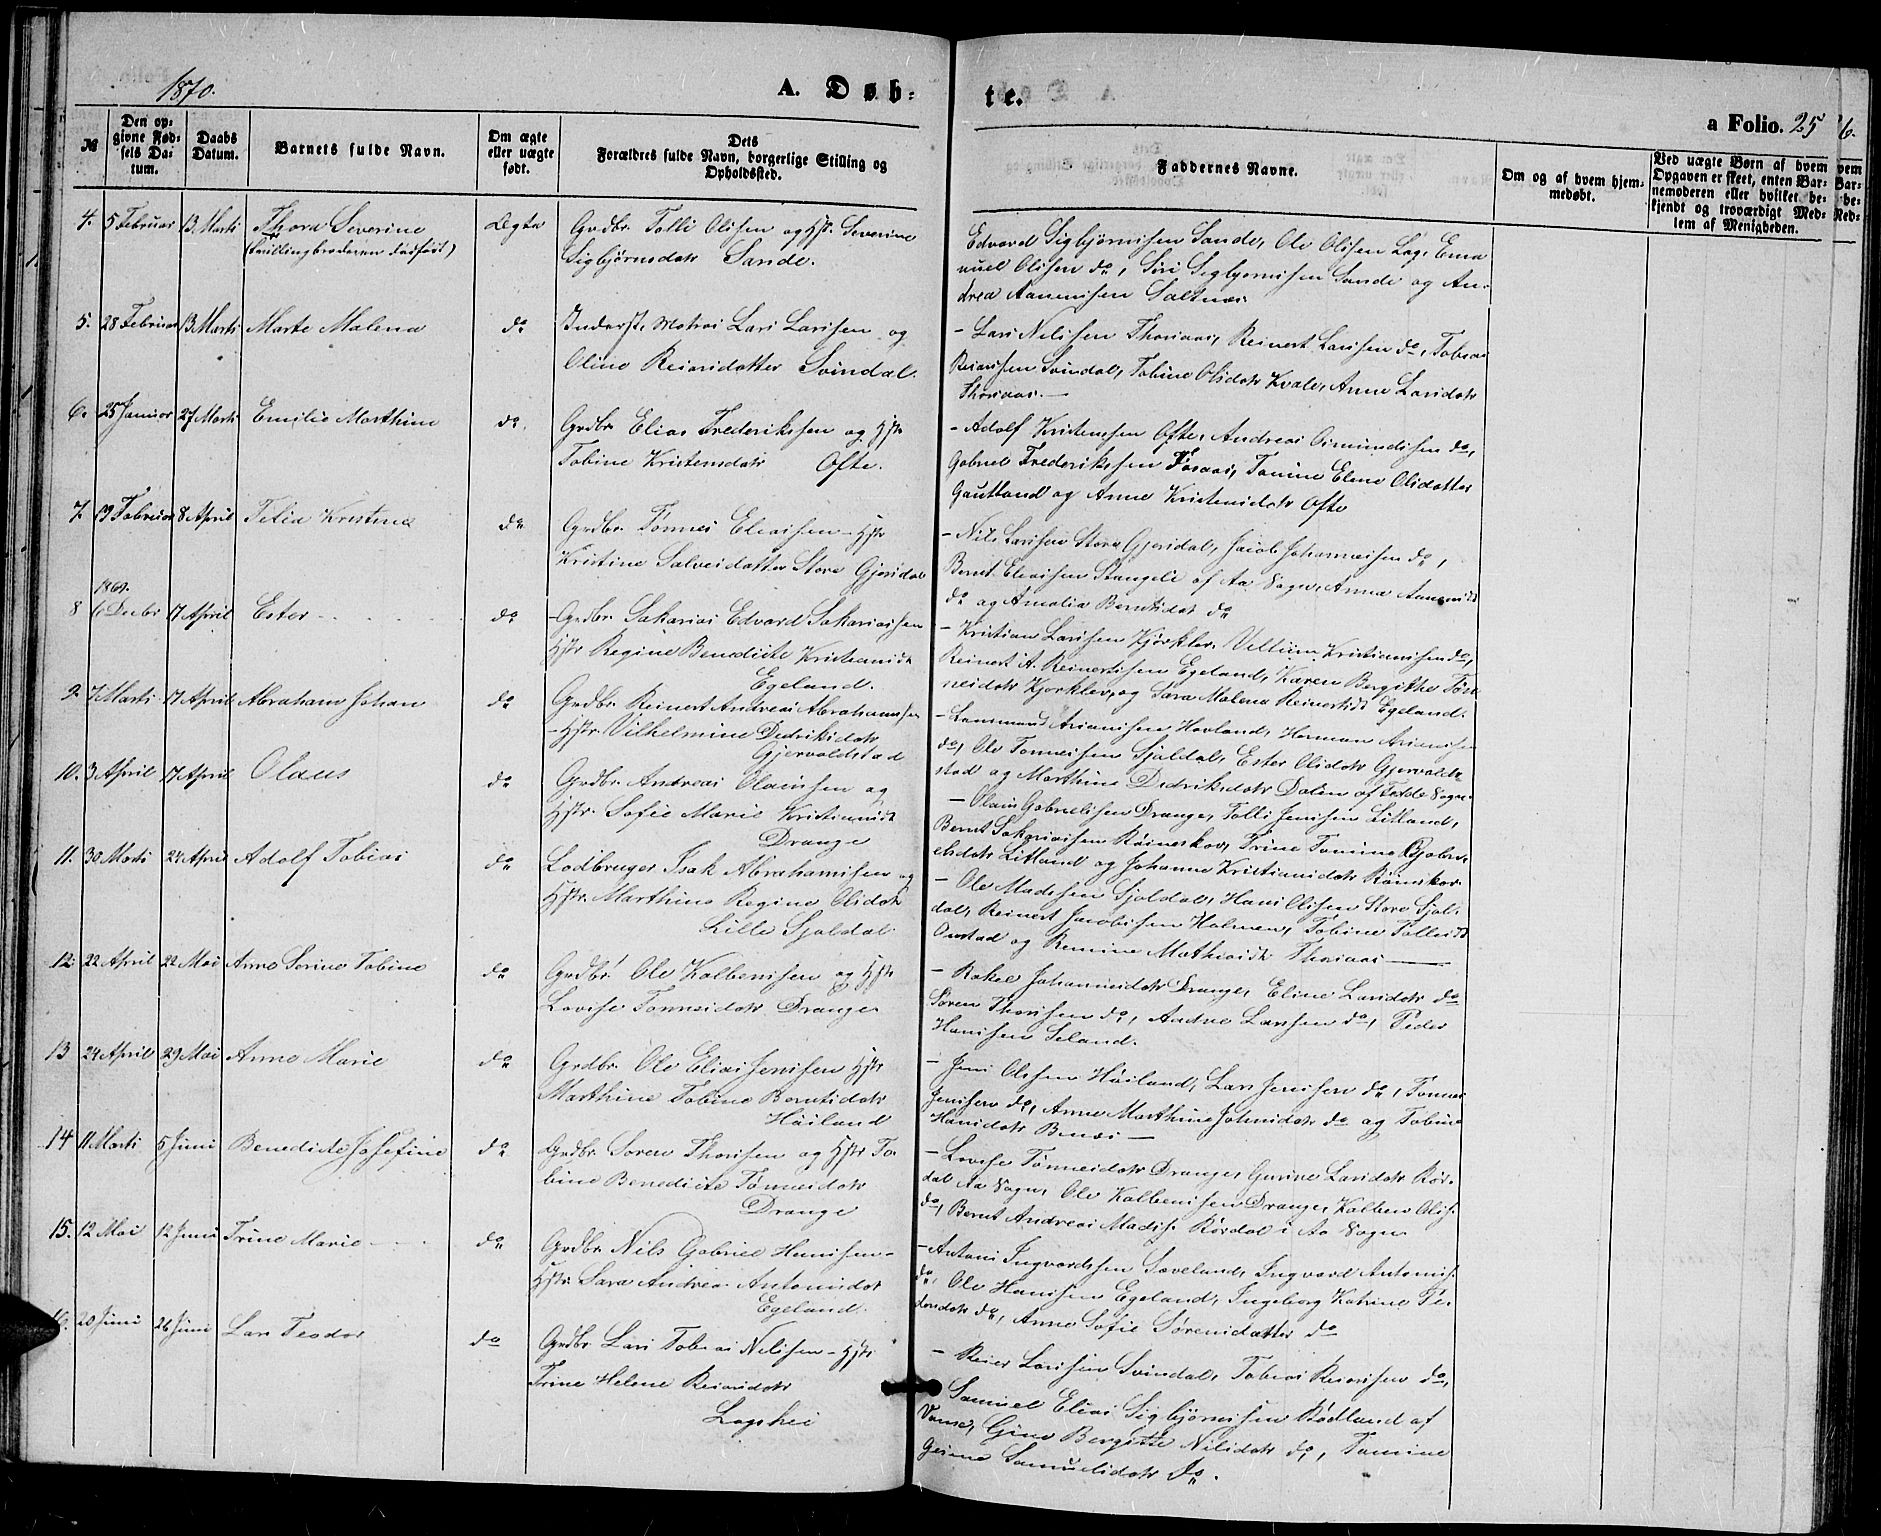 1870.
A. Døb:
te.
a Folio. 25
6.
№
Den op-
givne Fød-
sels Da-
tum.
Daabs
Datum.
Barnets fulde Navn.
Om ægte
eller uægte
født.
Dets
Forældres fulde Navn, borgerlige Stilling og
Opholdssted.
Faddernes Navne.
Om og af hvem hjem-
medøbt.
Ved uægte Børn af hvem
Opgaven er skeet, enten Bar-
nemoderen eller hvilket be-
kjendt og troværdigt Med-
lem af Menigheden.
4. 5 Februar 13 Marti Thora Severine Ægte Grdbr. Tolli Olisen og Hstr. Severine
(Tvillingbroderen dødfød)
Sigbjørnsdatr Sande.
Edvard Sigbjørnsen Sande, Ole Olisen Log, Ema
nuel Olisen do, Siri Sigbjørnsen Sande og An-
drea Aanensen Saltnes.
5. 28 Februar 13 Marti Marte Malena do Inderst, Matros Lars Larsen og
Oline Reiersdatter Svindal.
- Lars Nilsen Thorsaas, Reinert Larsen do, Tobias
Reiersen Svindal, Tobine Olsdatr Kvale, Anne Larsdatr
Thorsaas. —
6. 25 Januar 27 Marti Emilie Marthine do. Grdbr. Elias Frederiksen og Hstr
Tobine Kristensdatr Ofte.
- Adolf Kristensen Ofte, Andreas Osmundsen do,
Gabriel Frederiksen Fosaas, Tomine Elene Olsdatter
Gautland og Anne Kristensdatr Ofte
7. 19 Februar 8 April Tilia Kristine do Grdbr. Tønnes Eliassen - Hstr
Kristine Salvesdatter Store Gjersdal
- Nils Larsen Store Gjersdal, Jacob Johannesen do,
Bernt Eliassen Stangeli af Aa Sogn, Anna Aanensd
do og Amalia Berntsdatr do
1869.
8 6 Decbr 17 April Ester do - Grdbr. Sakarias Edvard Sakariassen
Hstr Regine Benedicte Kristiansd
Egeland.
- Kristian Larsen Kjørklev, Villum Kristiansen do,
Reinert A. Reinertsen Egeland, Karen Bergithe Tøn
nesdatr Kjørklev, og Sara Malena Reinertsd Egeland.
9. 7 Marti 17 April Abraham Johan do Grdbr. Reinert Andreas Abrahamsen
- Hstr. Vilhelmine Dedriksdatr
Gjervoldstad
- Lensmand Ariansen Hovland, Herman Ariansen
do, Ole Tønnesen Sjøldal, Ester Olsdatr Gjervold-
stad og Marthine Dedriksdatr Dalen af Fedde Sogn.
10. 3 April 17 April Olaus do Grdbr. Andreas Olausen og
Hstr. Sofie Marie Kristiansd
Drange
- Olaus Gabrielsen Drange, Tolli Jensen Litland,
Bernt Sakariassen Røineskor, Trine Tomine Gabri-
elsdatr Litland og Johanne Kristiansdatr Røinskor.
11. 30 Marti 24 April Adolf Tobias do Lodbruger Isak Abrahamsen og
Hstr. Marthine Regine Olsdatr
Lille Sjøldal
- Ole Madsen Sjøldal, Hans Olsen Store Sjøl-
dal, Reinert Jacobsen Holmen, Tobine Tollisd
Omstad og Remine Mathiasd Thorsaas —
12. 22 April 22 Mai Anne Serine Tobine do Grdbr. Ole Kolbensen og Hstr
Lovise Tønnesdatr Drange
- Rakel Johannesdatr Drange, Eline Larsdatr do
Søren Thorsen do, Andre Larsen do, Peder
Hansen Seland.
13 24 April 29 Mai Anne Marie do Grdbr. Ole Elias Jensen Hstr
Marthine Tobine Berntsdatr
Høiland
- Jens Olsen Høiland, Lars Jensen do, Tønnes
Jensen do, Anne Marthine Johnsdatr do og Tobine
Hansdatr —
14 11 Marti 5 Juni Benedicte Josefine do Grdbr. Søren Thorsen og Hstr To-
bine Benedicte Tønnesdatr
Drange
- Lovise Tønnesdatr Drange, Gurine Larsdatr Rør-
dal Aa Sogn, Ole Kolbensen Drange, Kolben Ols.
do, Bernt Andreas Mads. Rørdal i Aa Sogn
15. 12 Mai 12 Juni Trine Marie do Grdbr. Nils Gabriel Hansen -
Hstr. Sara Andrea Antonisdatr
Egeland.
- Antoni Ingvardsen Sæveland, Ingvard Antonis.
do, Ole Hansen Egeland, Ingeborg Katrine Pe-
dersdatr do, Anne Sofie Sørensdatter do
16. 20 Juni 26 Juni Lars Teodor do Grdbr. Lars Tobias Nilsen - Hstr
Trine Helene Reiersdatr
Logshei
- Reier Larsen Svindal, Tobias Reiersen do,
Samuel Elias Sigbjørnsen Rødland af
Vanse, Gine Bergitte Nilsdatr do, Tomine
Geine Samuelsdatr do.